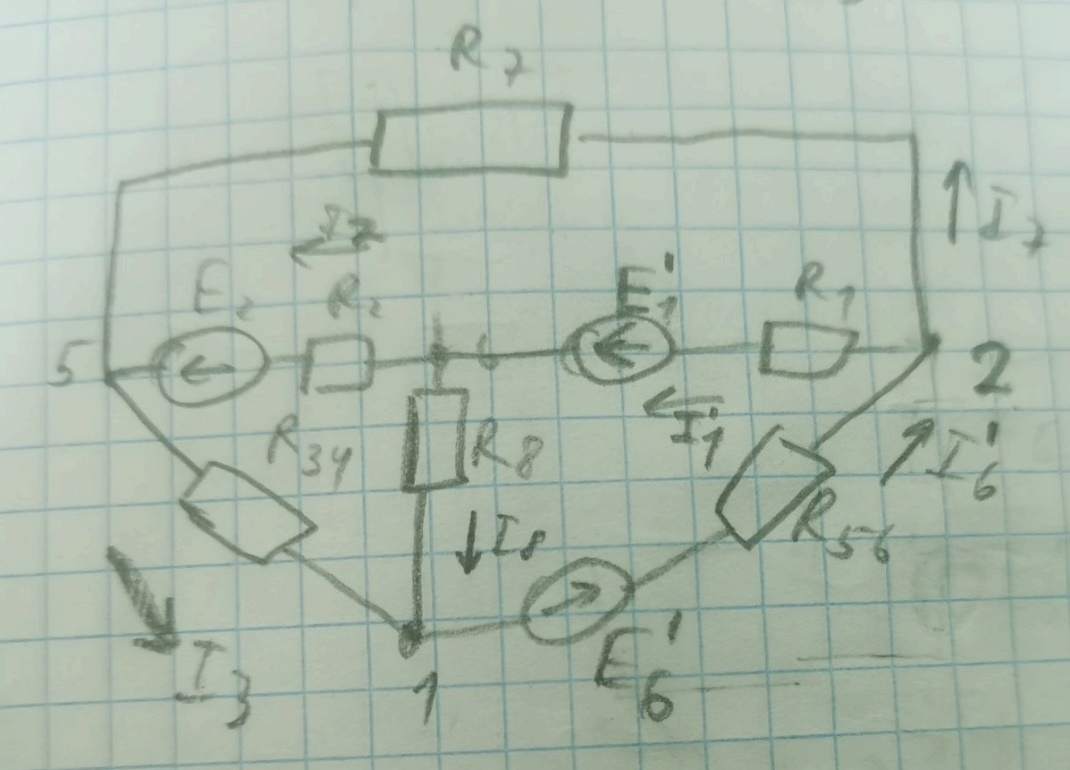 R7
I7
I2
E2
R2
E1'
R1
5
6
2
R34
R8
I1'
I6'
R56
I8
I3
1
E6'